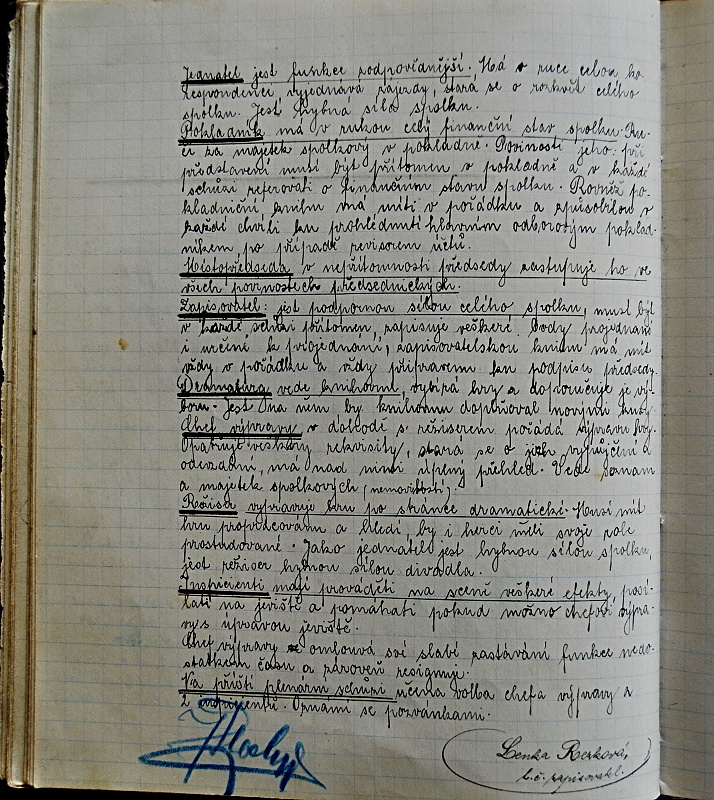 Jednatel jest funkce zodpovědnější. Má v ruce celou ko-
respondenci, vyjednává zájezdy, stará se o rozkvět celého
spolku. Jest hybná síla spolku.
Pokladník má v rukou celý finanční stav spolku. Ru-
čí za majetek spolkový v pokladně. Povinností jeho: při
představení musí být přítomen v pokladně a v každé
schůzi referovati o finančním stavu spolku. Rovněž po-
kladniční knihu má míti v pořádku a způsobilou v
každé chvíli ku prohlédnutí hlavním odborovým poklad-
níkem, po případě revisorem účtů.
Místopředseda v nepřítomnosti předsedy zastupuje ho ve
všech povinnostech předsednických.
Zapisovatel: jest podpornou silou celého spolku, musí být
v každé schůzi přítomen, zapisuje veškeré body projednané
i určené k projednání, zapisovatelskou knihu má mít
vždy v pořádku a vždy připravenu ku podpisu předsedy.
Dramaturg vede knihovnu, vybírá hry a doporučuje je vý-
boru. Jest na něm by knihovnu doplňoval novými
Chef výpravy v dohodě s režiserem pořádá výpravu
Opatřuje veškery rekvisity, stará se o jich vypůjčení a
odevzdání, má nad nimi úplný přehled. Vede seznam
a majetek spolkových (nemovitostí).
Režiser vypravuje hru po stránce dramatické. Musí mít
hru propracovánu a hledí, by i herci měli svoje role
prostudované. Jako jednatel jest hybnou silou spolku,
jest režiser hybnou silou divadla.
Inspicienti mají prováděti na sceně veškeré efekty, posí-
lati na jeviště a pomáhati pokud možno chefovi výpra-
vy s úpravou jeviště.
Chef výpravy se omlouvá své slabé zastávání funkce nedo-
statkem času a zároveň resignuje.
Na příští plenární schůzi učena volba chefa výpravy a
2 inspicientů. Oznámí se pozvánkami.
Lenka Rezková,
t.č. zapisovatel.